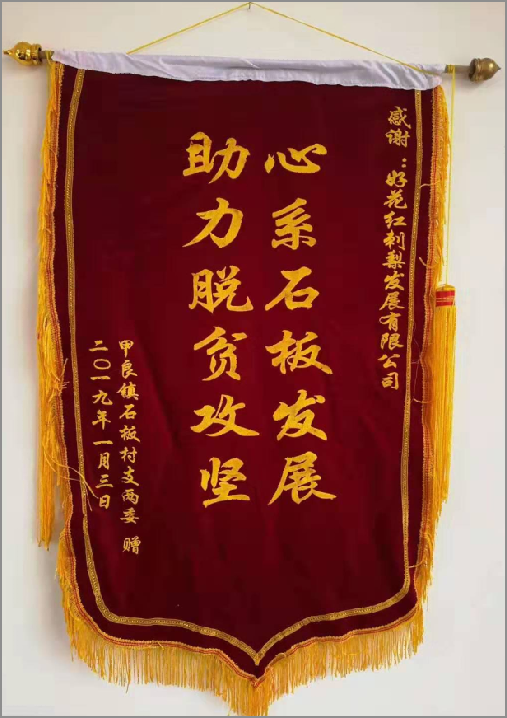 感谢：好花红刺梨发展有限公司
心系石板发展
助力脱贫攻坚
甲良镇石板村支两委 赠
二〇一九年一月三日